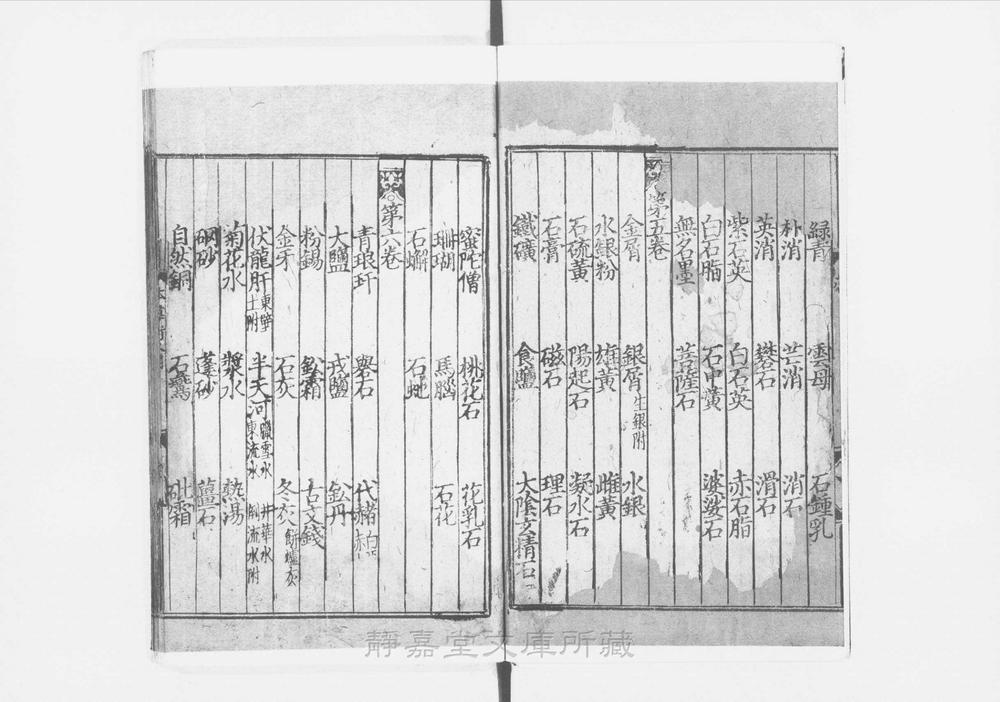 緑青 雲母 石鍾乳
朴消 芒消 消石
英消 礬石 滑石
紫石英 白石英 赤石脂
白石脂 石中黃 婆娑石
無名墨 菩薩石
第五卷
金屑 銀屑生銀附 水銀
水銀粉 雄黃 雌黃
石硫黃 陽起石 凝水石
石膏 磁石 理石
鐵礦 食鹽 大陰玄精石
蜜陀僧 桃花石 花乳石
珊瑚 馬腦 石花
石蠏 石虵
第六卷
青琅玕 礜石 代赭
大鹽 戎鹽 鈆丹
粉錫 鈆霜 古文錢
金牙 石灰 冬灰餅爐灰
伏龍肝東壁土附 半天河臘雪水東流水 井華水
菊花水 漿水 熱湯
硇砂 蓬砂 薑石
自然銅 石鷰 砒霜
靜嘉堂文庫所藏